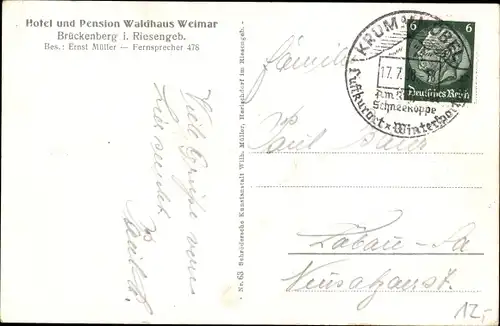 Hotel und Pension Waldhaus Weimar
Brückenberg i. Riesengeb.
Bes.: Ernst Müller — Fernsprecher 476
Viele Grüße
sendet
Nr. 63 Schrödersche Kunstanstalt Wilh. Müller, Herischdorf im Riesengeb.
KRUMMHÜBEL
17.7.
Am
Schneekoppe
Luftkurort x Wintersport
6 6
Deutsches Reich
Familie
Paul
Löbau-Sa
12,-